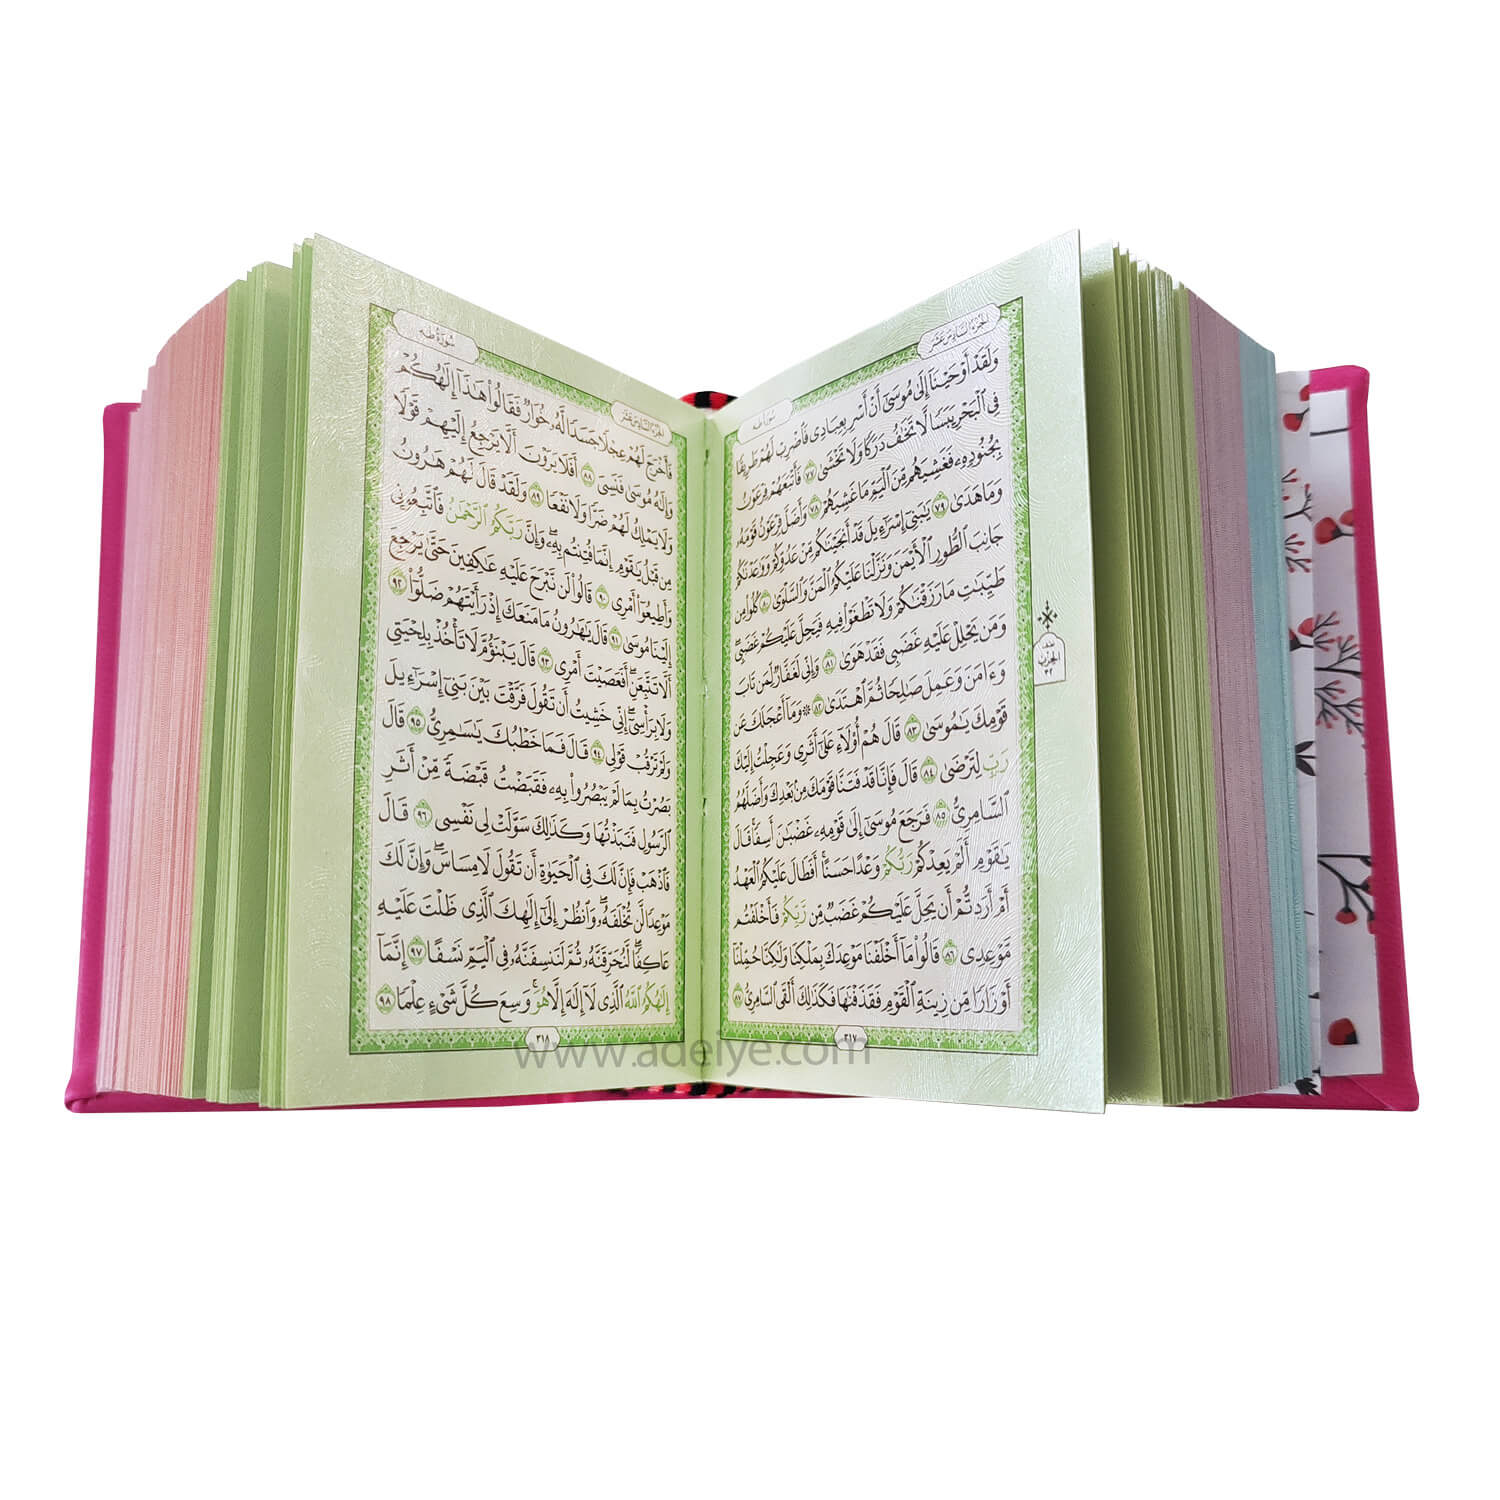 الجُزءُ السَّادِسَ عَشَرَ
سُورَةُ طه
وَلَقَدْ أَوْحَيْنَآ إِلَىٰ مُوسَىٰٓ أَنْ أَسْرِ بِعِبَادِى فَٱضْرِبْ لَهُمْ طَرِيقًا
فِى ٱلْبَحْرِ يَبَسًا لَّا تَخَٰفُ دَرَكًا وَلَا تَخْشَىٰ ٧٧ فَأَتْبَعَهُمْ فِرْعَوْنُ
بِجُنُودِهِۦ فَغَشِيَهُم مِّنَ ٱلْيَمِّ مَا غَشِيَهُمْ ٧٨ وَأَضَلَّ فِرْعَوْنُ قَوْمَهُۥ
وَمَا هَدَىٰ ٧٩ يَٰبَنِىٓ إِسْرَٰٓءِيلَ قَدْ أَنجَيْنَٰكُم مِّنْ عَدُوِّكُمْ وَوَٰعَدْنَٰكُمْ
جَانِبَ ٱلطُّورِ ٱلْأَيْمَنَ وَنَزَّلْنَا عَلَيْكُمُ ٱلْمَنَّ وَٱلسَّلْوَىٰ ٨٠ كُلُوا۟ مِن
طَيِّبَٰتِ مَا رَزَقْنَٰكُمْ وَلَا تَطْغَوْا۟ فِيهِ فَيَحِلَّ عَلَيْكُمْ غَضَبِى
وَمَن يَحْلِلْ عَلَيْهِ غَضَبِى فَقَدْ هَوَىٰ ٨١ وَإِنِّى لَغَفَّارٌ لِّمَن تَابَ
وَءَامَنَ وَعَمِلَ صَٰلِحًا ثُمَّ ٱهْتَدَىٰ ٨٢ ۞ وَمَآ أَعْجَلَكَ عَن
قَوْمِكَ يَٰمُوسَىٰ ٨٣ قَالَ هُمْ أُو۟لَآءِ عَلَىٰٓ أَثَرِى وَعَجِلْتُ إِلَيْكَ
رَبِّ لِتَرْضَىٰ ٨٤ قَالَ فَإِنَّا قَدْ فَتَنَّا قَوْمَكَ مِنۢ بَعْدِكَ وَأَضَلَّهُمُ
ٱلسَّامِرِىُّ ٨٥ فَرَجَعَ مُوسَىٰٓ إِلَىٰ قَوْمِهِۦ غَضْبَٰنَ أَسِفًا ۚ قَالَ
يَٰقَوْمِ أَلَمْ يَعِدْكُمْ رَبُّكُمْ وَعْدًا حَسَنًا ۚ أَفَطَالَ عَلَيْكُمُ ٱلْعَهْدُ
أَمْ أَرَدتُّمْ أَن يَحِلَّ عَلَيْكُمْ غَضَبٌ مِّن رَّبِّكُمْ فَأَخْلَفْتُم
مَّوْعِدِى ٨٦ قَالُوا۟ مَآ أَخْلَفْنَا مَوْعِدَكَ بِمَلْكِنَا وَلَٰكِنَّا حُمِّلْنَآ
أَوْزَارًا مِّن زِينَةِ ٱلْقَوْمِ فَقَذَفْنَٰهَا فَكَذَٰلِكَ أَلْقَى ٱلسَّامِرِىُّ ٨٧
٣١٧
نصف
الحزب
٣٢
الجُزءُ السَّادِسَ عَشَرَ
سُورَةُ طه
فَأَخْرَجَ لَهُمْ عِجْلًا جَسَدًا لَّهُۥ خُوَارٌ فَقَالُوا۟ هَٰذَآ إِلَٰهُكُمْ
وَإِلَٰهُ مُوسَىٰ فَنَسِىَ ٨٨ أَفَلَا يَرَوْنَ أَلَّا يَرْجِعُ إِلَيْهِمْ قَوْلًا
وَلَا يَمْلِكُ لَهُمْ ضَرًّا وَلَا نَفْعًا ٨٩ وَلَقَدْ قَالَ لَهُمْ هَٰرُونُ
مِن قَبْلُ يَٰقَوْمِ إِنَّمَا فُتِنتُم بِهِۦ ۖ وَإِنَّ رَبَّكُمُ ٱلرَّحْمَٰنُ فَٱتَّبِعُونِى
وَأَطِيعُوٓا۟ أَمْرِى ٩٠ قَالُوا۟ لَن نَّبْرَحَ عَلَيْهِ عَٰكِفِينَ حَتَّىٰ يَرْجِعَ
إِلَيْنَا مُوسَىٰ ٩١ قَالَ يَٰهَٰرُونُ مَا مَنَعَكَ إِذْ رَأَيْتَهُمْ ضَلُّوٓا۟ ٩٢
أَلَّا تَتَّبِعَنِ ۖ أَفَعَصَيْتَ أَمْرِى ٩٣ قَالَ يَبْنَؤُمَّ لَا تَأْخُذْ بِلِحْيَتِى
وَلَا بِرَأْسِىٓ ۖ إِنِّى خَشِيتُ أَن تَقُولَ فَرَّقْتَ بَيْنَ بَنِىٓ إِسْرَٰٓءِيلَ
وَلَمْ تَرْقُبْ قَوْلِى ٩٤ قَالَ فَمَا خَطْبُكَ يَٰسَٰمِرِىُّ ٩٥ قَالَ
بَصُرْتُ بِمَا لَمْ يَبْصُرُوا۟ بِهِۦ فَقَبَضْتُ قَبْضَةً مِّنْ أَثَرِ
ٱلرَّسُولِ فَنَبَذْتُهَا وَكَذَٰلِكَ سَوَّلَتْ لِى نَفْسِى ٩٦ قَالَ
فَٱذْهَبْ فَإِنَّ لَكَ فِى ٱلْحَيَوٰةِ أَن تَقُولَ لَا مِسَاسَ ۖ وَإِنَّ لَكَ
مَوْعِدًا لَّن تُخْلَفَهُۥ ۖ وَٱنظُرْ إِلَىٰٓ إِلَٰهِكَ ٱلَّذِى ظَلْتَ عَلَيْهِ
عَاكِفًا ۖ لَّنُحَرِّقَنَّهُۥ ثُمَّ لَنَنسِفَنَّهُۥ فِى ٱلْيَمِّ نَسْفًا ٩٧ إِنَّمَآ
إِلَٰهُكُمُ ٱللَّهُ ٱلَّذِى لَآ إِلَٰهَ إِلَّا هُوَ ۚ وَسِعَ كُلَّ شَىْءٍ عِلْمًا ٩٨
٣١٨
www.adeiye.com